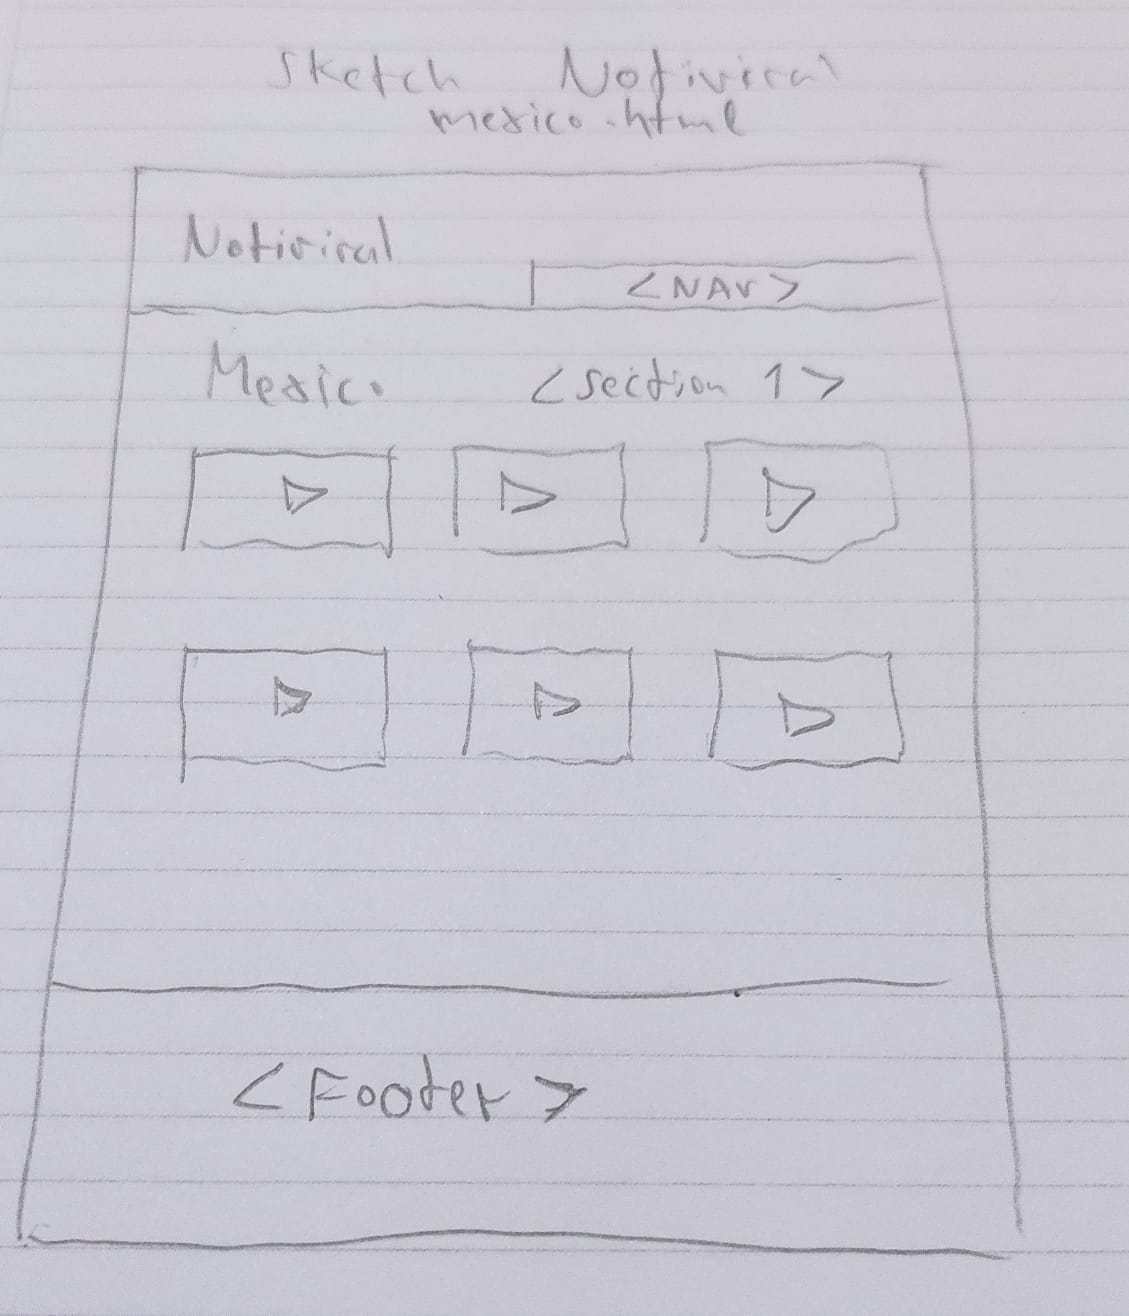 Sketch Notiviral
mexico.html
Notiviral
<NAV>
Mexico <section 1>
<Footer>